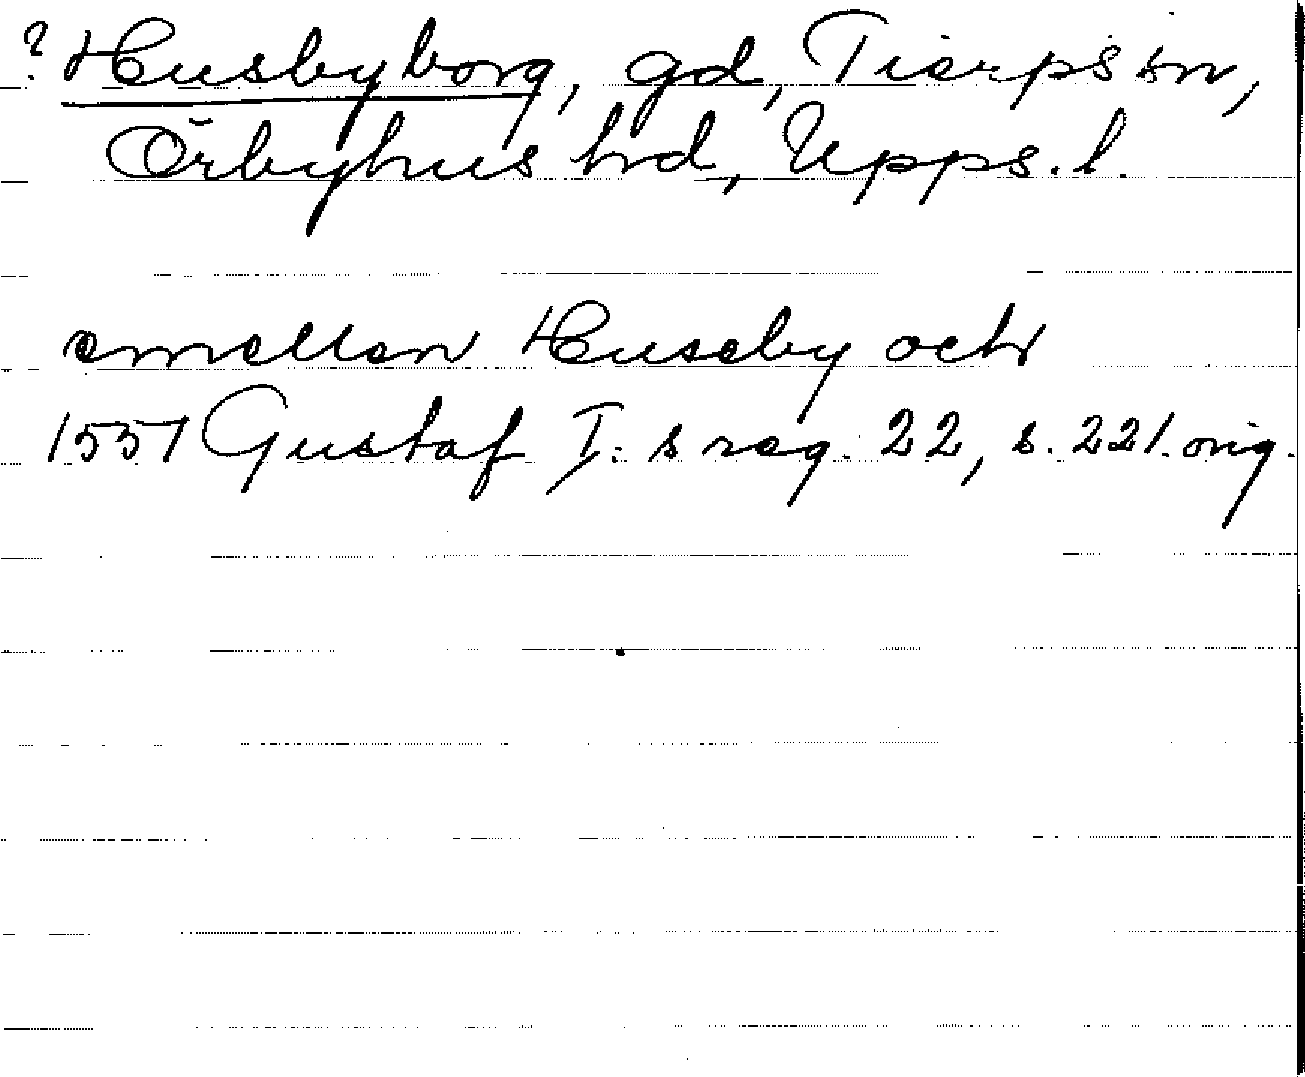 ? Husbyborg, gd, Tierps sn,
Örbyhus hd, Upps. l.
emellen Huseby och
1557 Gustaf I: s reg. 22, s. 221. orig.